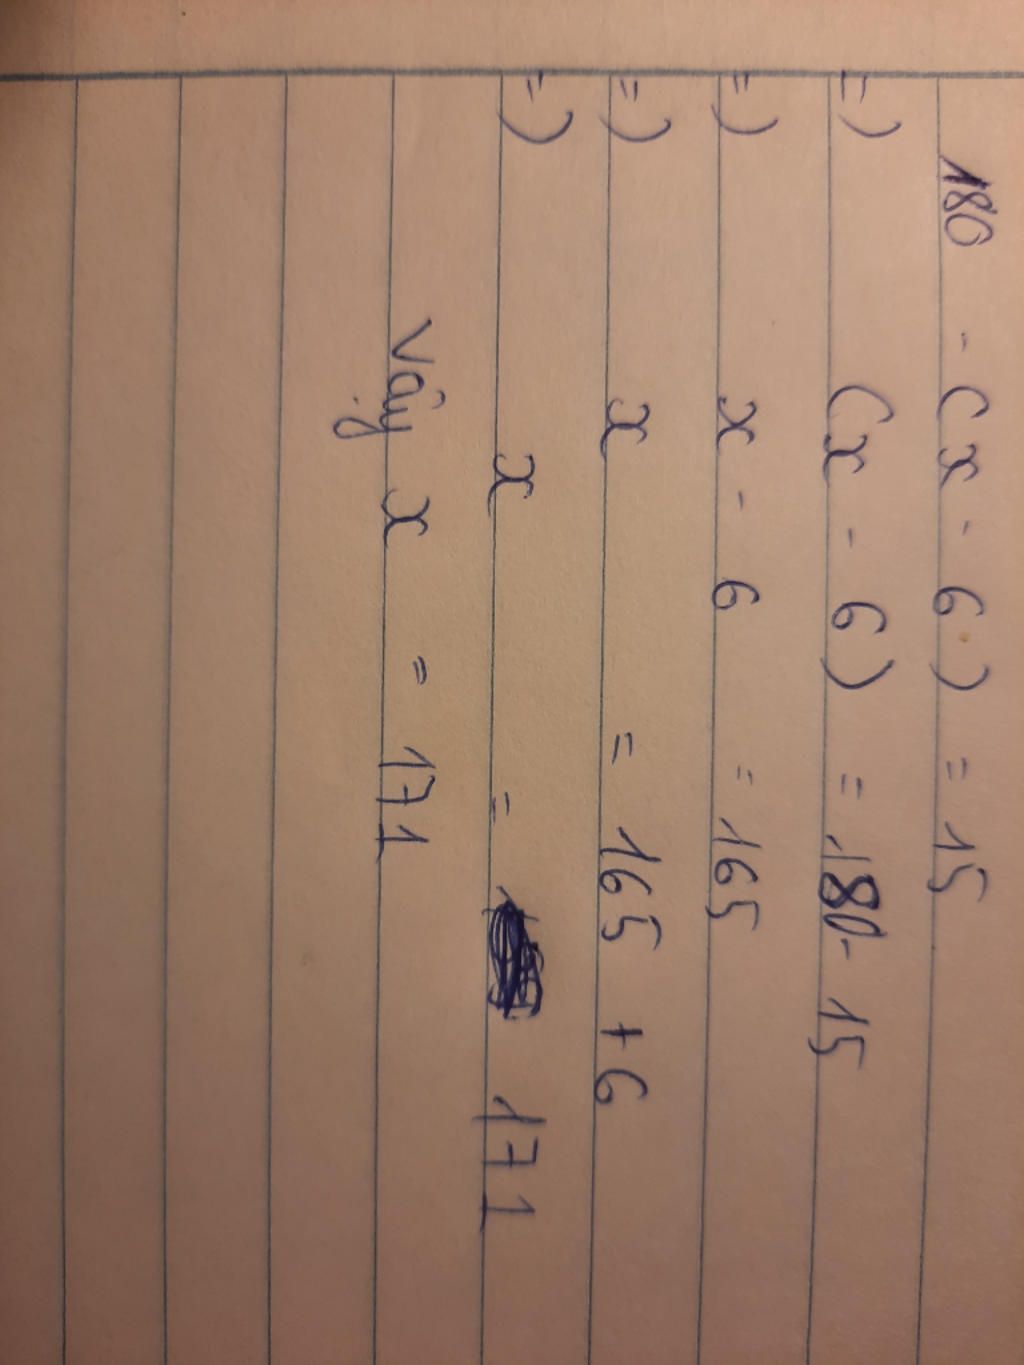 180 - (x - 6) = 15
=) (x - 6) = 180 - 15
=) x - 6 = 165
=) x = 165 + 6
=) x = 171
Vậy x = 171